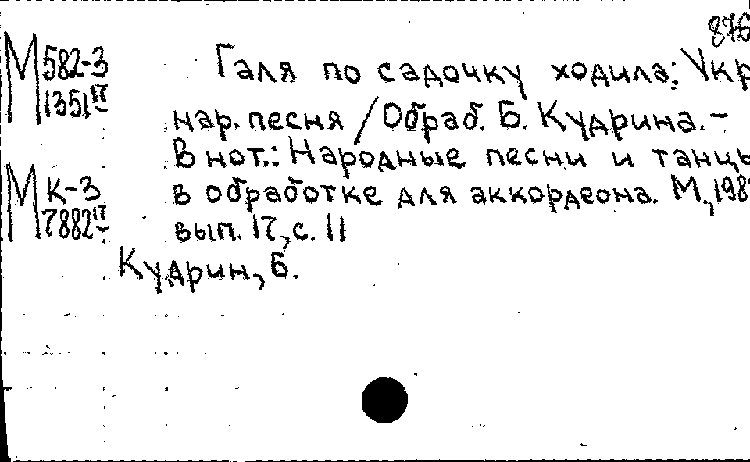 876
М 582-3 Галя по садочку ходила: Укр
1351 17 нар. песня / Обраб. Б. Кудрина. –
В нот.: Народные песни и танцы
М К-3 в обработке для аккордеона. М., 198
7882 17 вып. 17, с. 11
Кудрин, Б.